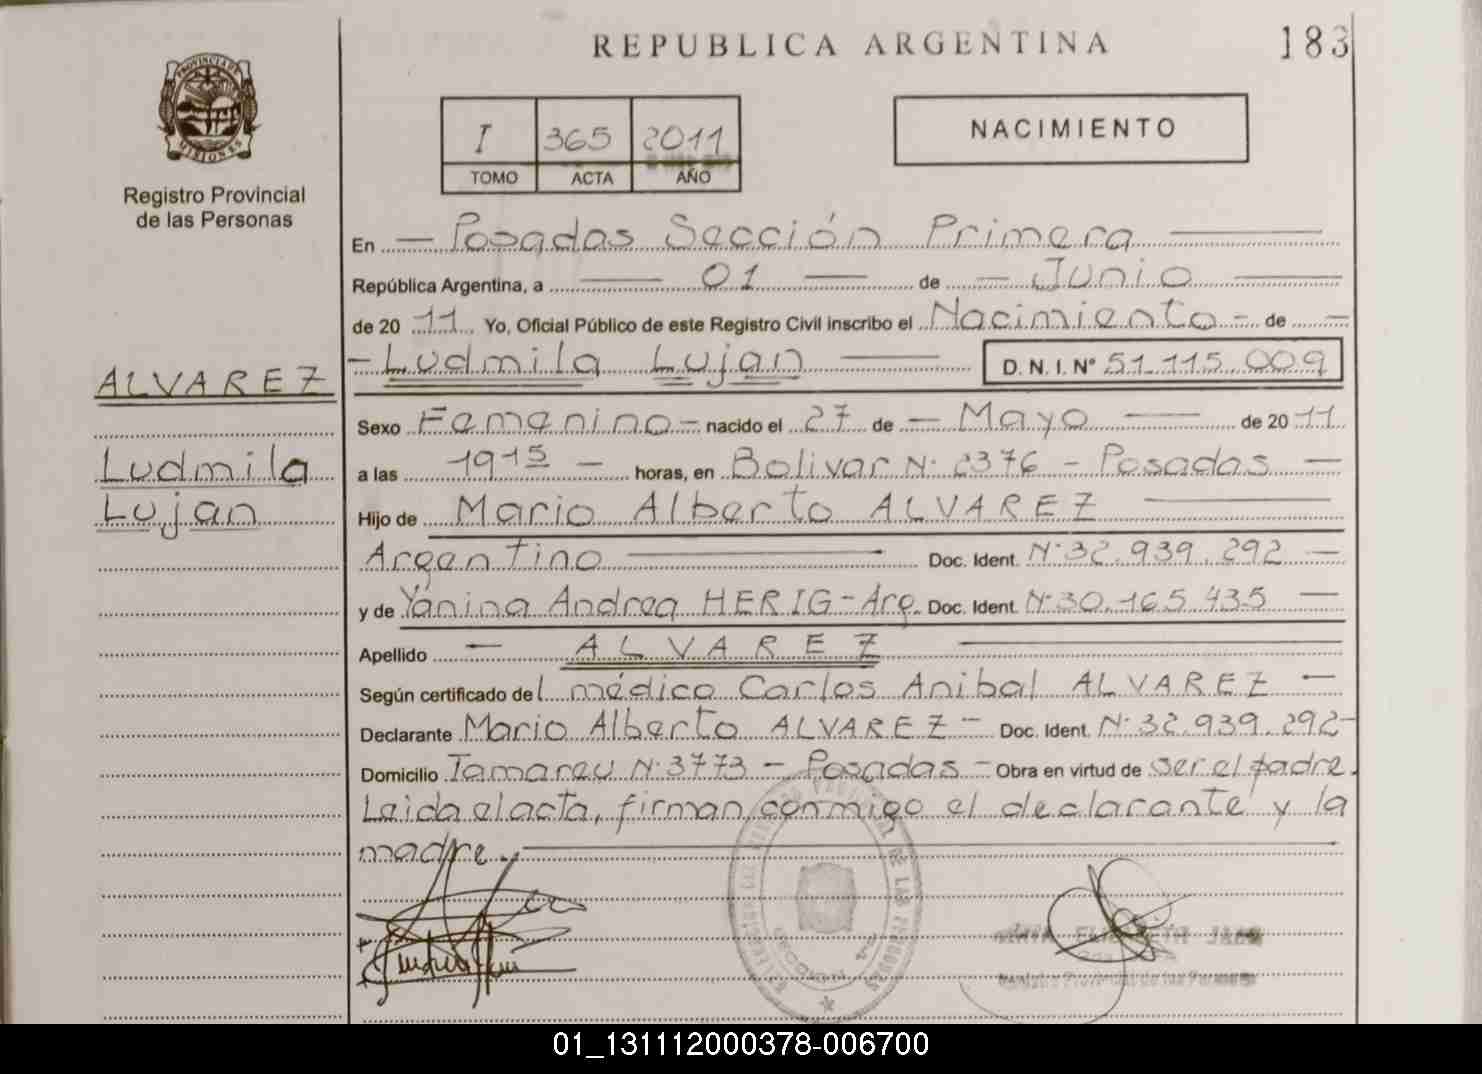 REPUBLICA ARGENTINA
183
PROVINCIA DE
MISIONES
Registro Provincial
de las Personas
I 365 2011
TOMO ACTA AÑO
NACIMIENTO
En — Posadas Sección Primera —
República Argentina, a — 01 — de — Junio —
de 20 11 Yo, Oficial Público de este Registro Civil inscribo el Nacimiento – de –
– Ludmila Lujan — D. N. I. Nº 51.115.009
ALVAREZ
Ludmila
Lujan
Sexo Femenino – nacido el 27 de — Mayo — de 20 11
a las 19 15 – horas, en Bolivar N° 2376 – Posadas –
Hijo de Mario Alberto ALVAREZ —
Argentino — Doc. Ident. N° 32.939.292 —
y de Yanina Andrea HERIG – Arg. Doc. Ident. N° 30.165.435 —
Apellido — ALVAREZ —
Según certificado del médico Carlos Anibal ALVAREZ —
Declarante Mario Alberto ALVAREZ – Doc. Ident. N° 32.939.292 –
Domicilio Tamareu N° 3773 – Posadas – Obra en virtud de ser el padre.
Leida el acta, firman conmigo el declarante y la
madre. —
01_131112000378-006700